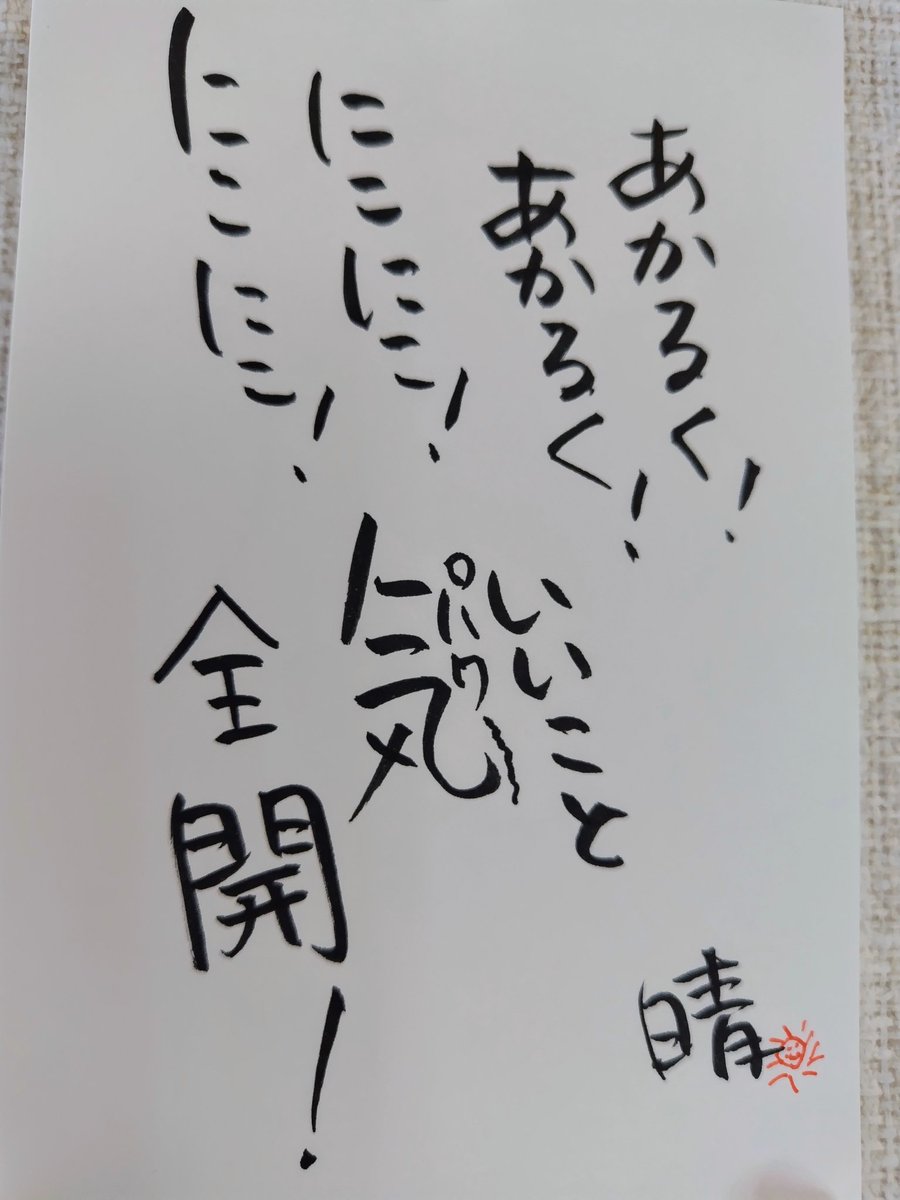 あかるく!
あかるく!
にこにこ!
にこにこ!
いいこと
パワー
気
全開!
晴